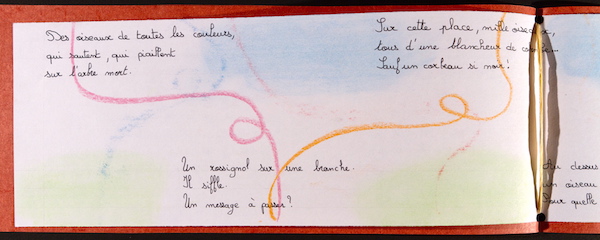 Des oiseaux de toutes les couleurs,
qui sautent, qui piaillent
sur l'arbre mort.
Sur cette place, mille oiseaux,
tous d'une blancheur de
Sauf un corbeau si noir!
Un rossignol sur une branche.
Il siffle.
Un message à passer?
Au dessus
un oiseau
Pour quelle